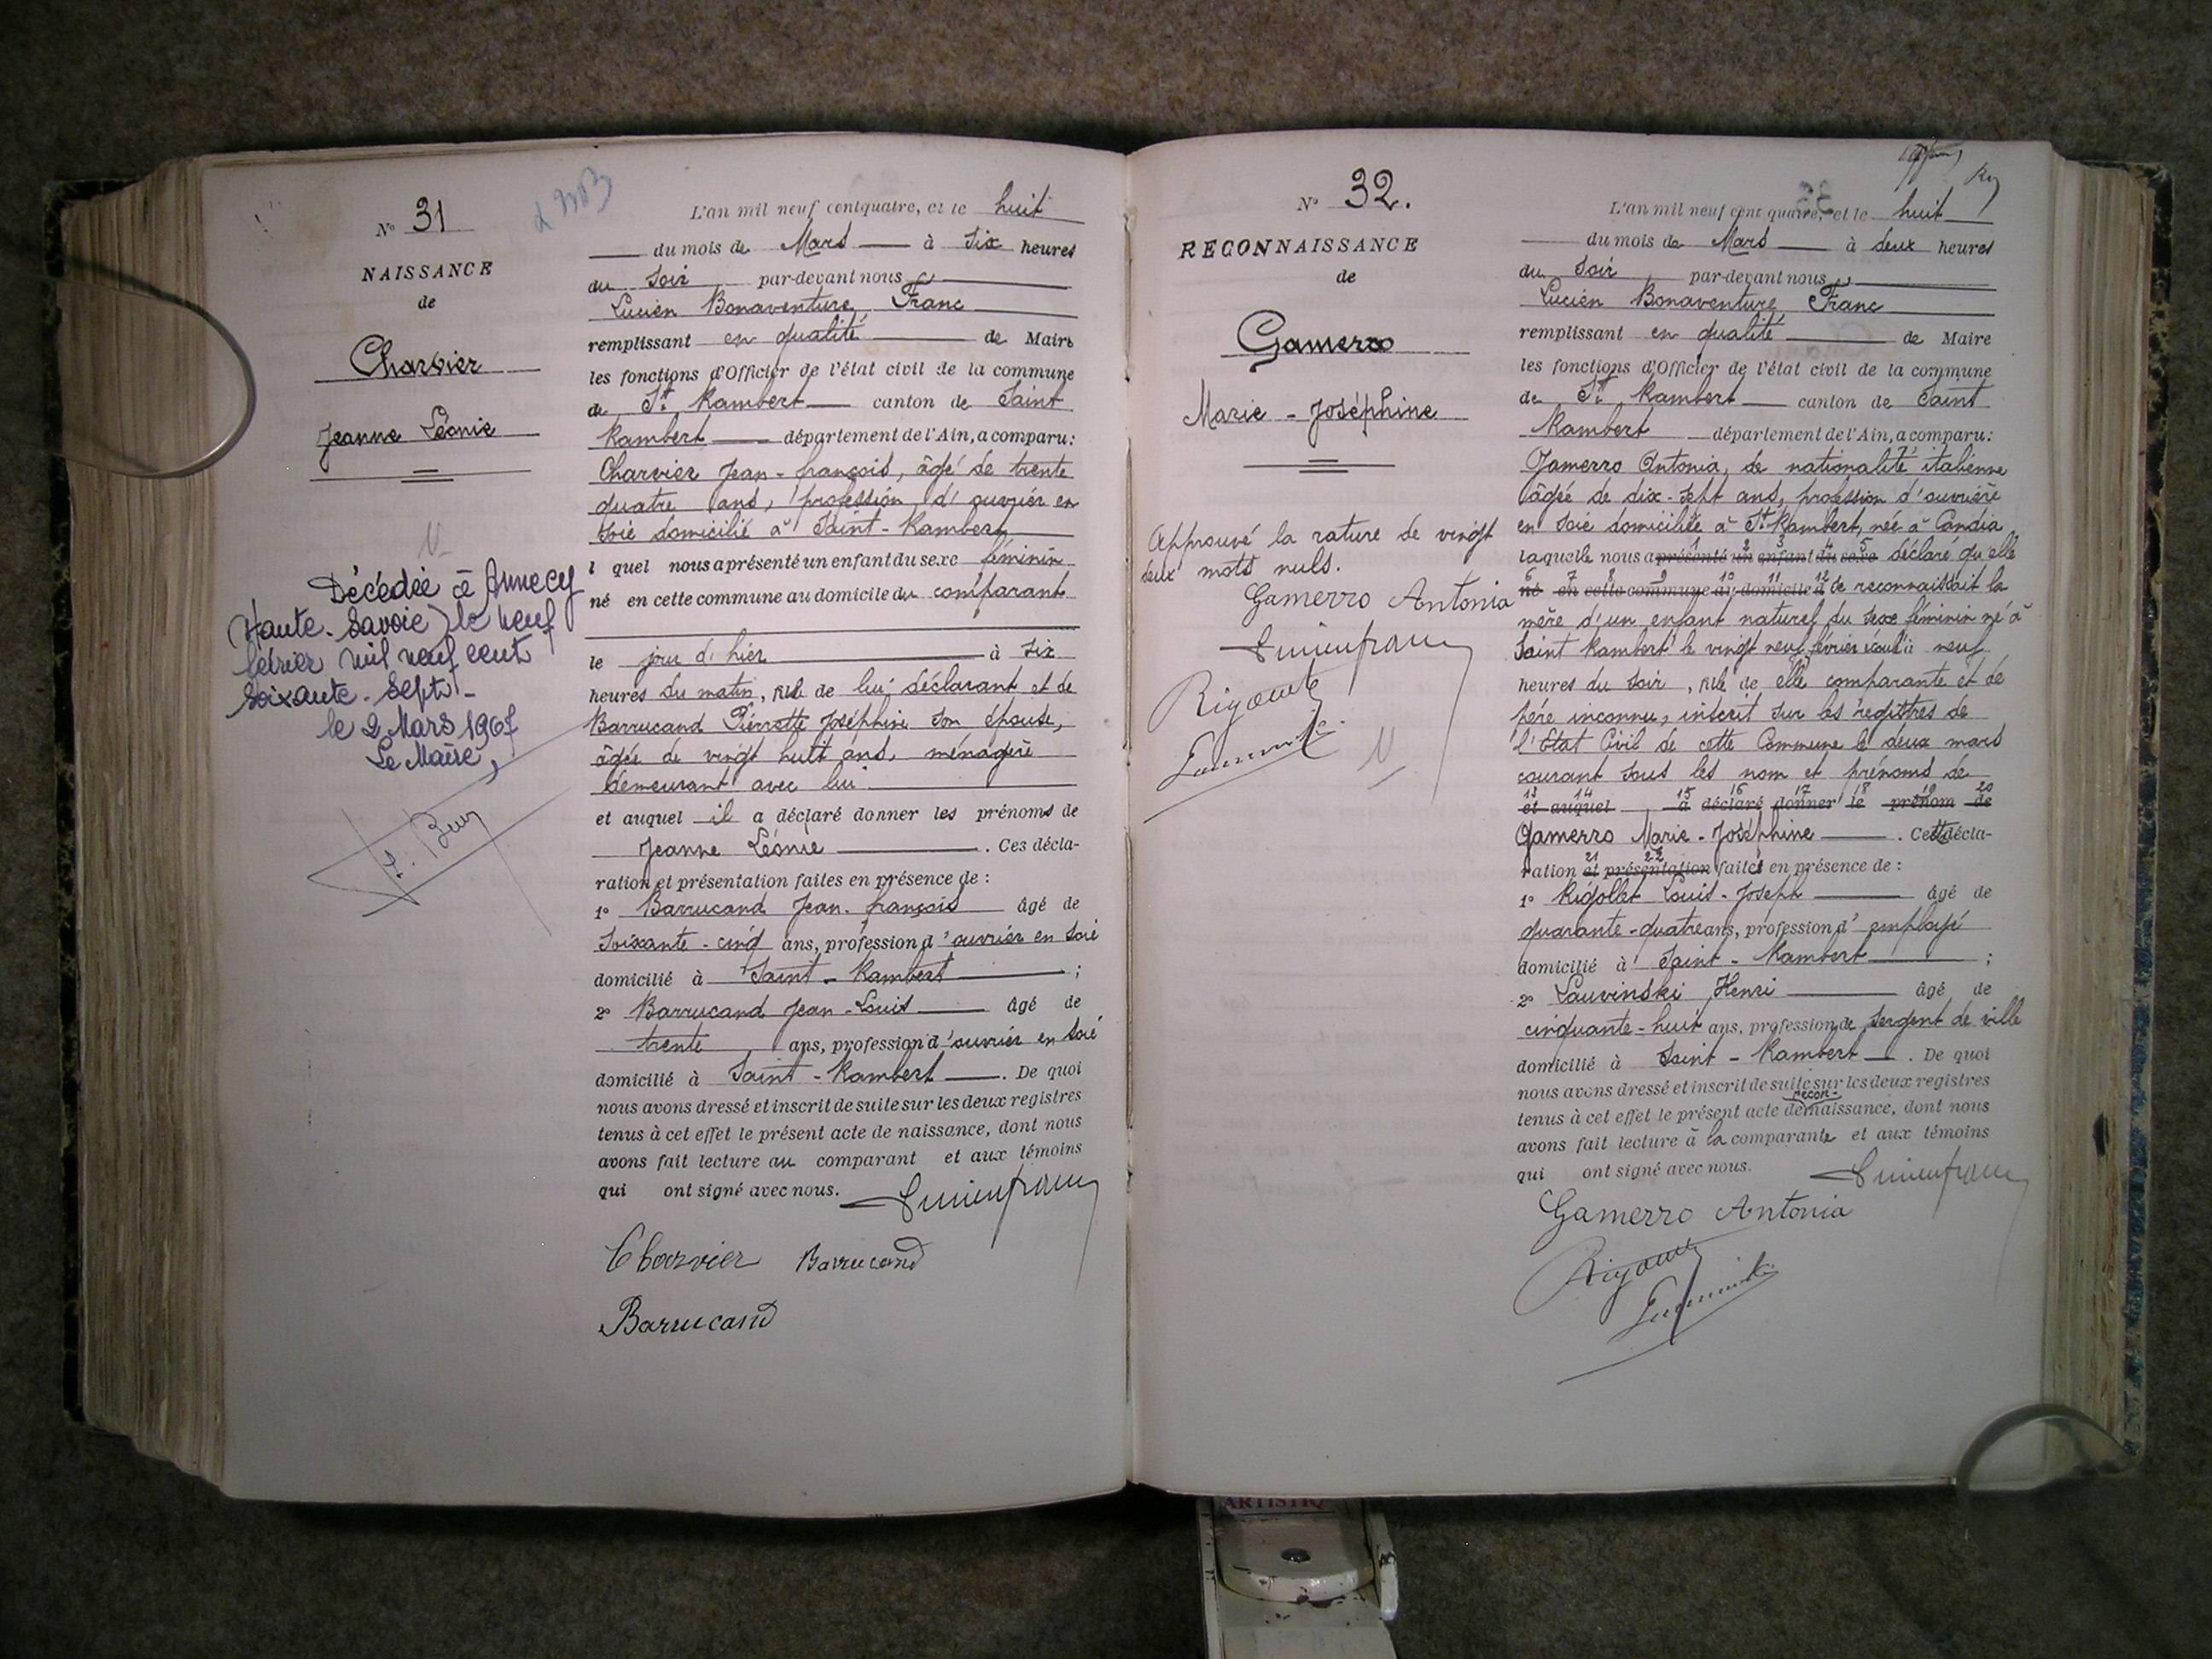 N° 31
NAISSANCE
de
Charvier
Jeanne Léonie
Décédée à Annecy
(Haute-Savoie) le neuf
février mil neuf cent
soixante-sept.
le 2 Mars 1967
Le Maire,
L'an mil neuf cent quatre, et le huit
du mois de Mars à six heures
du soir par-devant nous
Lucien Bonaventure Franc
remplissant en qualité de Maire
les fonctions d'Officier de l'état civil de la commune
de St Rambert canton de Saint
Rambert département de l'Ain, a comparu:
Charvier Jean-françois, âgé de trente
quatre ans, profession d'ouvrier en
soie domicilié à Saint-Rambert
l quel nous a présenté un enfant du sexe féminin
né en cette commune au domicile du comparant
le jour d'hier à six
heures du matin, fille de lui déclarant et de
Barrucand Pierrette Joséphine son épouse,
âgée de vingt huit ans, ménagère
demeurant avec lui.
et auquel il a déclaré donner les prénoms de
Jeanne Léonie. Ces décla-
ration et présentation faites en présence de :
1° Barrucand Jean-françois âgé de
soixante-cinq ans, profession d'ouvrier en soie
domicilié à Saint-Rambert ;
2° Barrucand Jean-Louis âgé de
trente ans, profession d'ouvrier en soie
domicilié à Saint-Rambert. De quoi
nous avons dressé et inscrit de suite sur les deux registres
tenus à cet effet le présent acte de naissance, dont nous
avons fait lecture au comparant et aux témoins
qui ont signé avec nous. Lucien franc
Charvier Barrucand
Barrucand
N° 32.
RECONNAISSANCE
de
Gamerro
Marie-Joséphine
Approuvé la rature de vingt
deux mots nuls.
Gamerro Antonia
Lucien franc
L'an mil neuf cent quatre, et le huit
du mois de Mars à deux heures
du soir par-devant nous
Lucien Bonaventure Franc
remplissant en qualité de Maire
les fonctions d'Officier de l'état civil de la commune
de St Rambert canton de Saint
Rambert département de l'Ain, a comparu:
Gamerro Antonia, de nationalité italienne
âgée de dix-sept ans, profession d'ouvrière
en soie domiciliée à St Rambert, née à Candia
1 2 3 4 5
laquelle nous a présenté un enfant du sexe déclaré qu'elle
6 7 8 9 10 11 12
né en cette commune au domicile d de reconnaissait la
mère d'un enfant naturel du sexe féminin né à
Saint Rambert le vingt neuf février écoulé à neuf
heures du soir, fille de elle comparante et de
père inconnu, inscrit sur les registres de
l'Etat Civil de cette Commune le deux mars
courant sous les nom et prénoms de
13 14 15 16 17 18 19 20
et auquel a déclaré donner le prénom de
Gamerro Marie-Joséphine. Cette décla-
21 22
ration et présentation faites en présence de :
1° Rigollet Louis-Joseph âgé de
quarante-quatre ans, profession d'employé
domicilié à Saint-Rambert ;
2° Louvinski Henri âgé de
cinquante-huit ans, profession de sergent de ville
domicilié à Saint-Rambert. De quoi
nous avons dressé et inscrit de suite sur les deux registres
récon-
tenus à cet effet le présent acte de naissance, dont nous
avons fait lecture à la comparante et aux témoins
qui ont signé avec nous. Lucien franc
Gamerro Antonia
ARTISTIQ